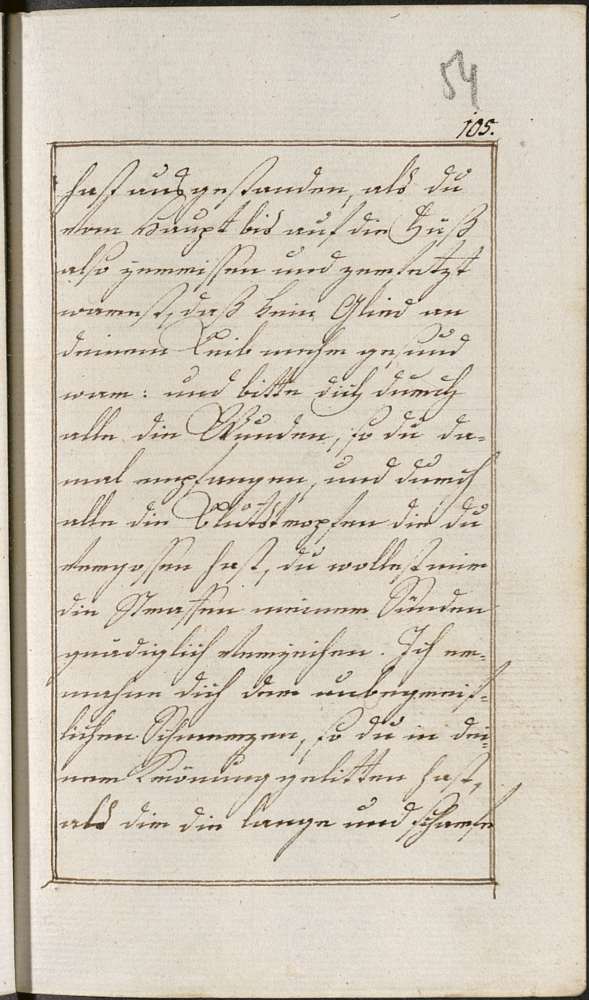 54
105.
hast ausgestanden, als du
vom Haupt bis auf die Füß
also zerrissen und zerletzt
warest, daß kein Glied an
deinem Leib mehr gesund
ware: und bitte dich durch
alle die Wunden, so du da-
mal empfangen, und durch
alle die Blutstropfen die du
vergossen hast, du wollest mir
die Straffen meiner Sünden
gnädiglich verzeihen. Ich er-
mahne dich der unbegreif-
lichen Schmerzen, so du in dei-
ner Krönung gelitten hast,
als dir die lange und scharfe